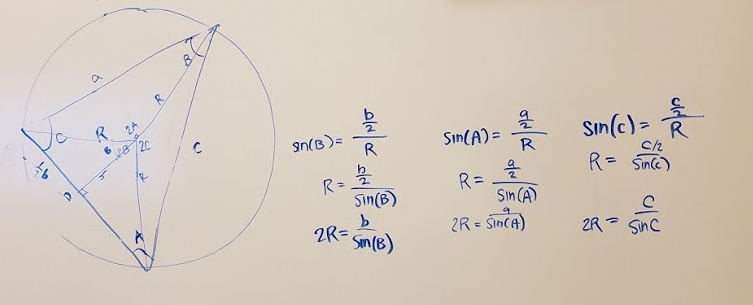 a
B
R
C
R
2A
B
2B
2C
C
R
½b
D
A
sin(B) = (b/2)/R
R = (b/2)/sin(B)
2R = b/sin(B)
sin(A) = (a/2)/R
R = (a/2)/sin(A)
2R = a/sin(A)
sin(c) = (c/2)/R
R = (c/2)/sin(c)
2R = c/sin C